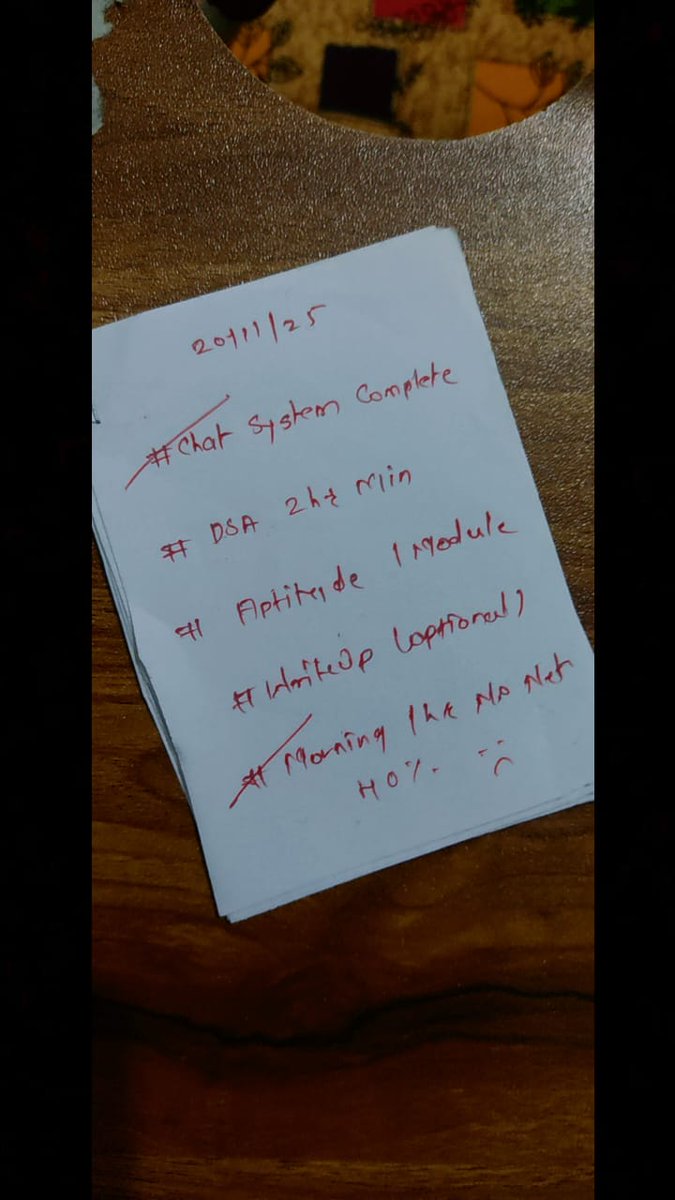 20/11/25
# Chat System Complete
# DSA 2hr Min
# Aptitude 1 Module
# WriteUp (optional)
# Morning 1hr No Net
40%